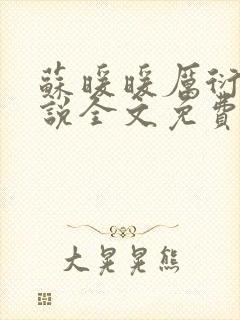 蘇暖暖厲衍
說全文免費
大晃晃熊